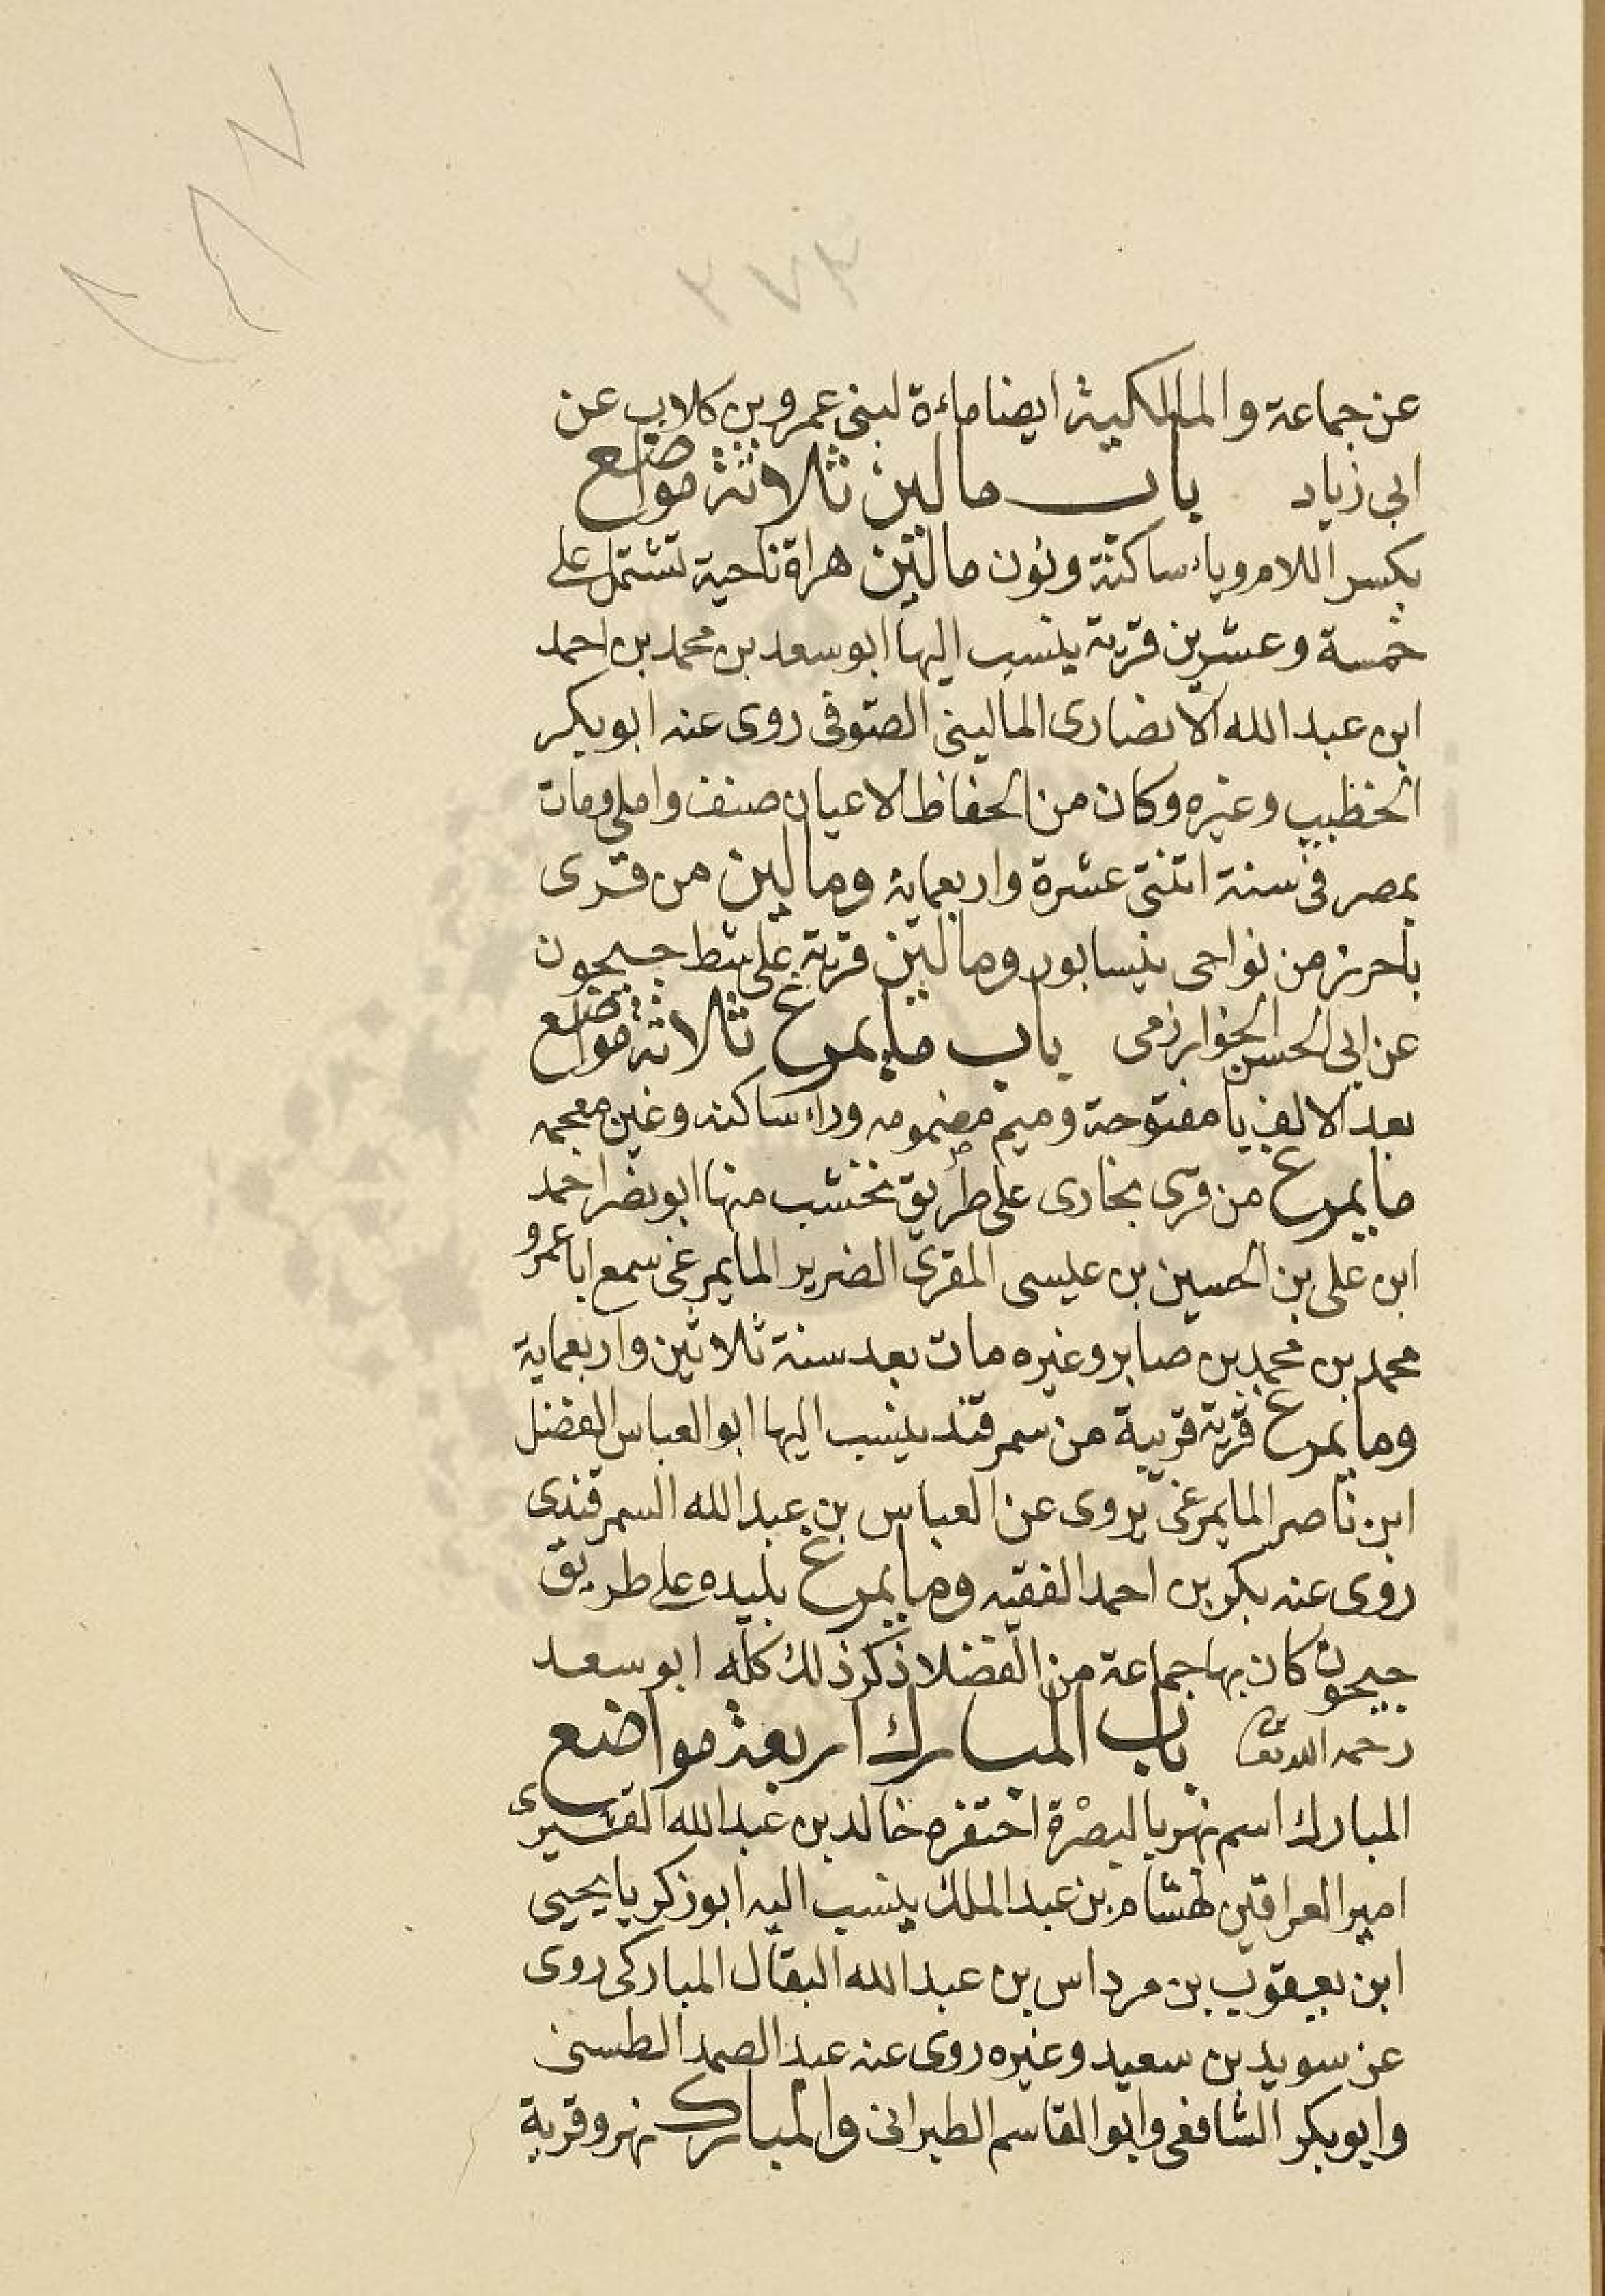 عن جماعة والمالكية ايضا ماءة لبنى عمرو بن كلاب عن
ابى زياد باب مالين ثلاثة مواضع
بكسر اللام وياء ساكنة ونون مالين هراة ناحية تشتمل على
خمسة وعشرين قرية ينسب اليها ابو سعد بن محمد بن احمد
ابن عبد الله الانصارى المالينى الصوفى روى عنه ابو بكر
الخطيب وغيره وكان من الحفاظ الاعيان صنف واملى ومات
بمصر فى سنة اثنتى عشرة واربعماية ومالين من قرى
باخرز من نواحى نيسابور ومالين قرية على شط جيحون
عن ابى الحسن الخوارزمى باب مايمرغ ثلاثة مواضع
بعد الالف يا مفتوحة وميم مضمومه وراء ساكنه وغين معجمه
مايمرغ من قرى بخارى على طريق نخشب منها ابو نصر احمد
ابن على بن الحسين بن عيسى المقرى الضرير المايمرغى سمع ابا عمرو
محمد بن محمد بن صابر وغيره مات بعد سنة ثلاثين واربعماية
ومايمرغ قرية قريبة من سمرقند ينسب اليها ابو العباس الفضل
ابن ناصر المايمرغى يروى عن العباس بن عبد الله السمرقندى
روى عنه بكر بن احمد الفقيه ومايمرغ بليده على طريق
جيحون كان بها جماعة من الفضلا ذكر ذلك كله ابو سعد
رحمه الله تعالى باب المبارك اربعة مواضع
المبارك اسم نهر بالبصرة احتفره خالد بن عبد الله القشيرى
امير العراقين لهشام بن عبد الملك ينسب اليه ابو زكريا يحيى
ابن يعقوب بن مرداس بن عبد الله البقال المباركى روى
عن سويد بن سعيد وغيره روى عنه عبد الصمد الطستى
وابو بكر الشافعى وابو القاسم الطبرانى والمبارك نهر وقرية